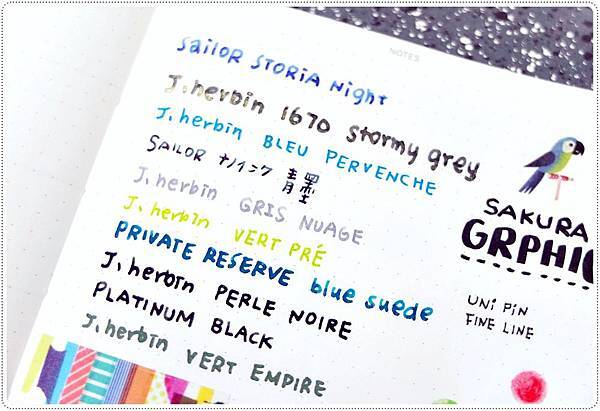 NOTES
SAILOR STORIA Night
J.herbin 1670 stormy grey
J.herbin BLEU PERVENCHE
SAILOR ナノインク 青墨
J.herbin GRIS NUAGE
J.herbin VERT PRÉ
PRIVATE RESERVE blue suede
J.herbin PERLE NOIRE
PLATINUM BLACK
J.herbin VERT EMPIRE
SAKURA
GRPHIC
UNI PIN
FINE LINE